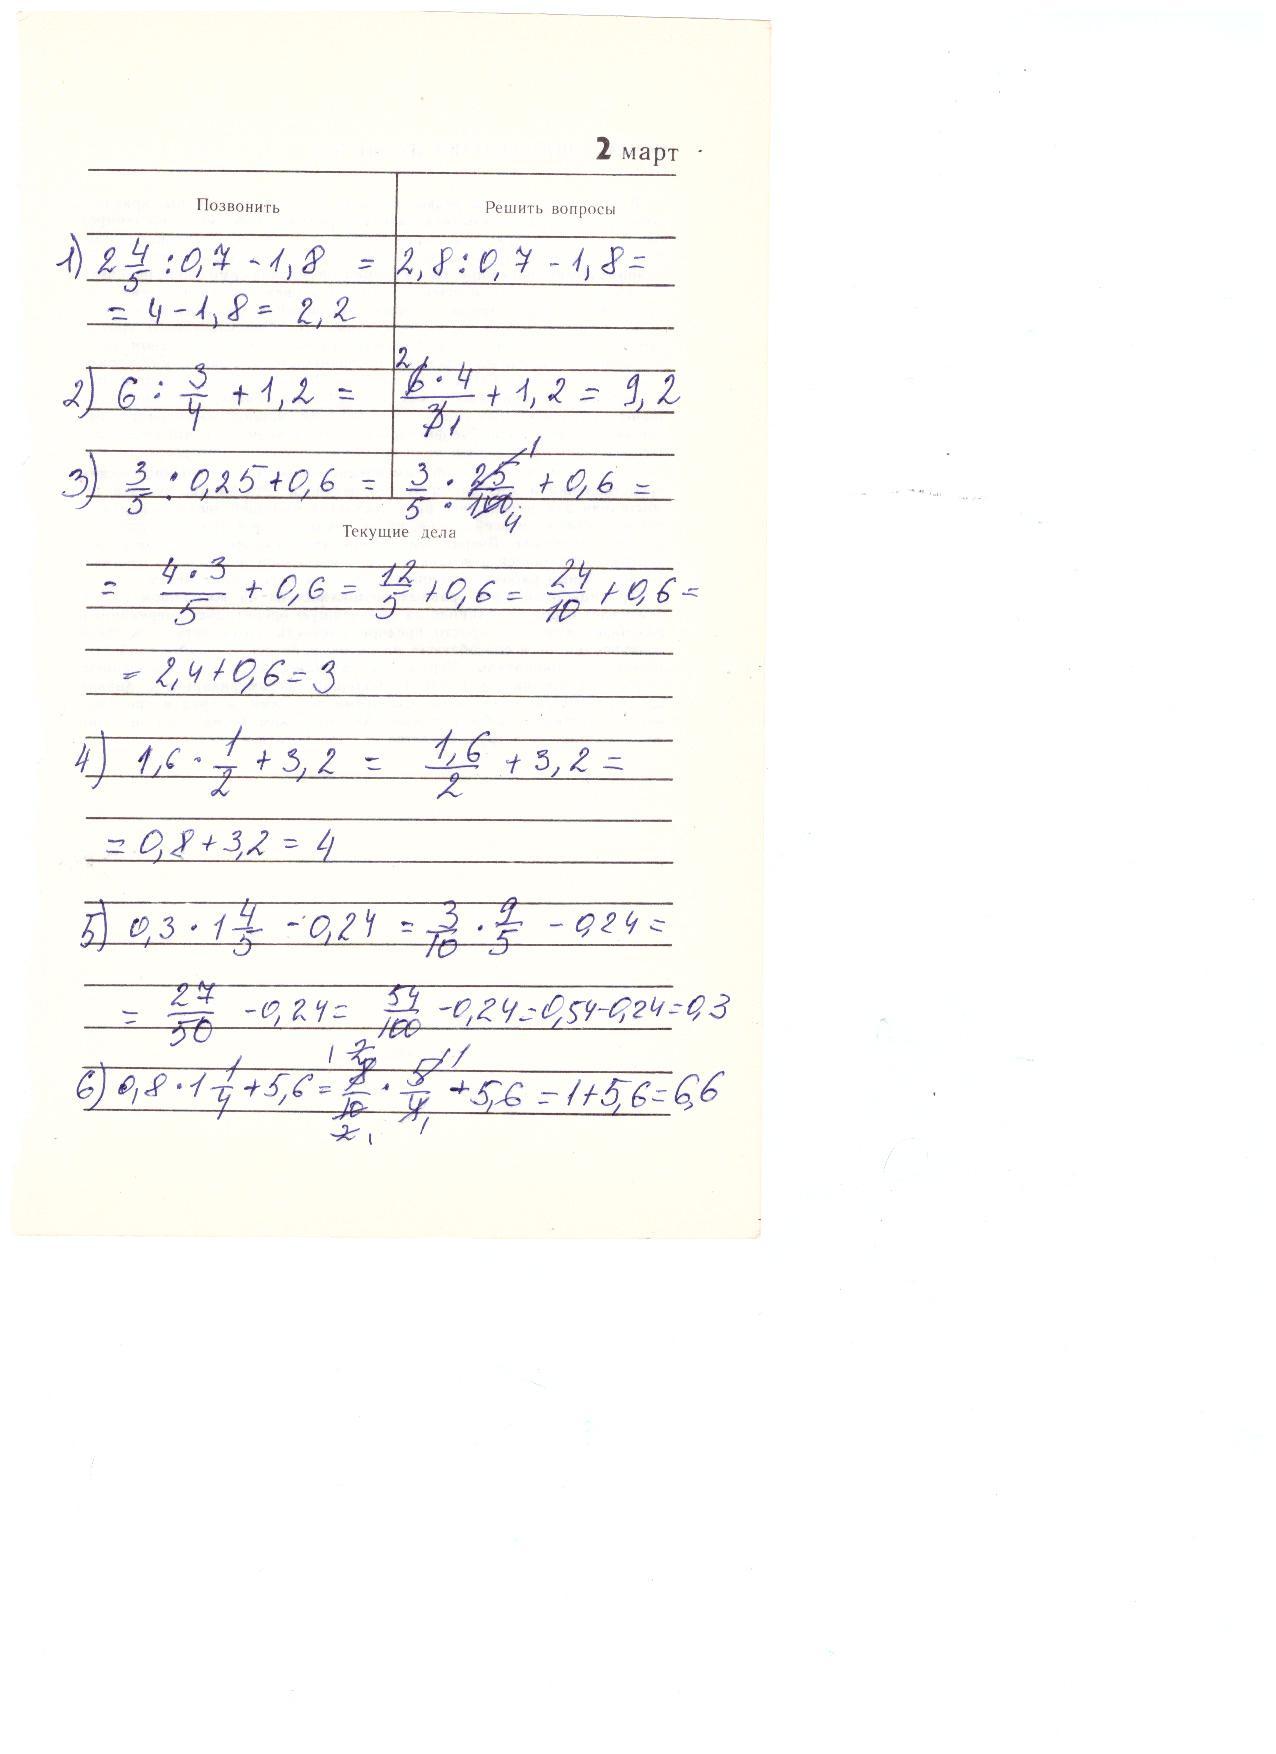 2 март
Позвонить Решить вопросы
1) 2 4/5 : 0,7 - 1,8 = 2,8 : 0,7 - 1,8 =
= 4 - 1,8 = 2,2
2) 6 : 3/4 + 1,2 = 6 2 · 4 / 3 1 + 1,2 = 9,2
3) 3/5 : 0,25 + 0,6 = 3/5 · 25 1 / 100 4 + 0,6 =
Текущие дела
= 4 · 3 / 5 + 0,6 = 12/5 + 0,6 = 24/10 + 0,6 =
= 2,4 + 0,6 = 3
4) 1,6 · 1/2 + 3,2 = 1,6/2 + 3,2 =
= 0,8 + 3,2 = 4
5) 0,3 · 1 4/5 - 0,24 = 3/10 · 9/5 - 0,24 =
= 27/50 - 0,24 = 54/100 - 0,24 = 0,54 - 0,24 = 0,3
6) 0,8 · 1 1/4 + 5,6 = 8/10 · 5/4 + 5,6 = 1 + 5,6 = 6,6